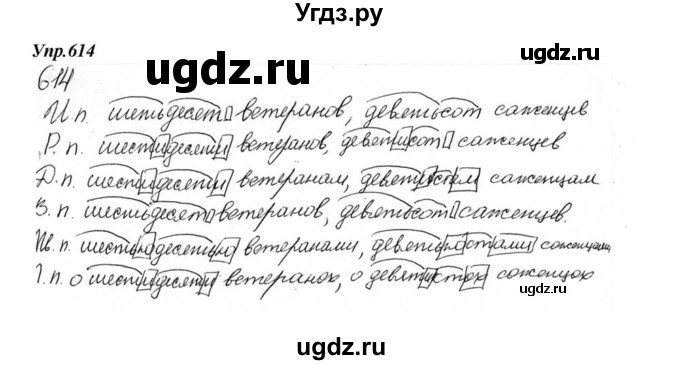 Угдз.ру
Упр.614
ugdz.ru
614
И п. шестьдесят ветеранов, девятьсот саженцев
Р. п. шестидесяти ветеранов, девятисот саженцев
Д. п. шестидесяти ветеранам, девятистам саженцам
В. п. шестьдесят ветеранов, девятьсот саженцев.
Тв. п. шестьюдесятью ветеранами, девятьюстами саженцами
П. п. о шестидесяти ветеранах, о девятистах саженцах
ugdz.ru
ugdz.ru